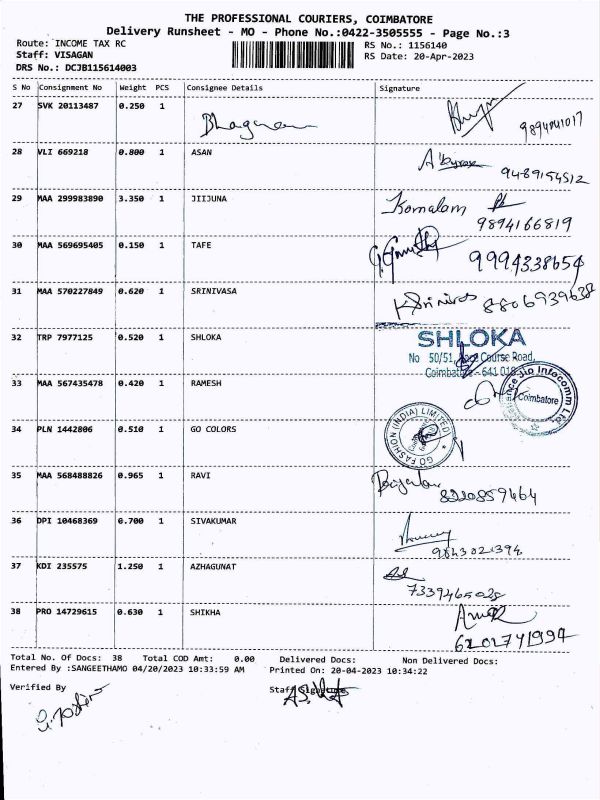 THE PROFESSIONAL COURIERS, COIMBATORE
Delivery Runsheet - MO - Phone No.:0422-3505555 - Page No.:3
Route: INCOME TAX RC RS No.: 1156140
Staff: VISAGAN RS Date: 20-Apr-2023
DRS No.: DCJB115614003
S No Consignment No Weight PCS Consignee Details Signature
27 SVK 20113487 0.250 1
28 VLI 669218 0.800 1 ASAN
9489154512
29 MAA 299983890 3.350 1 JIIJUNA Komalam
9894166819
30 MAA 569695405 0.150 1 TAFE
9994338654
31 MAA 570227849 0.620 1 SRINIVASA K Srinivas 8806939638
32 TRP 7977125 0.520 1 SHLOKA SHLOKA
No 50/51, Race Course Road,
Coimbatore - 641 018
33 MAA 567435478 0.420 1 RAMESH Jio Infocomm Ltd. Coimbatore
34 PLN 1442806 0.510 1 GO COLORS GO FASHION (INDIA) LIMITED
35 MAA 568488826 0.965 1 RAVI
8220859464
36 DPI 10468369 0.700 1 SIVAKUMAR
9843021394
37 KDI 235575 1.250 1 AZHAGUNAT
7339465028
38 PRO 14729615 0.630 1 SHIKHA
6202741994
Total No. Of Docs: 38 Total COD Amt: 0.00 Delivered Docs: Non Delivered Docs:
Entered By :SANGEETHAMO 04/20/2023 10:33:59 AM Printed On: 20-04-2023 10:34:22
Verified By Staff Signature